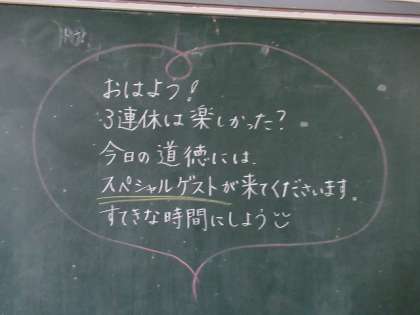 おはよう!
3連休は楽しかった?
今日の道徳には、
スペシャルゲストが来てくださいます。
すてきな時間にしよう